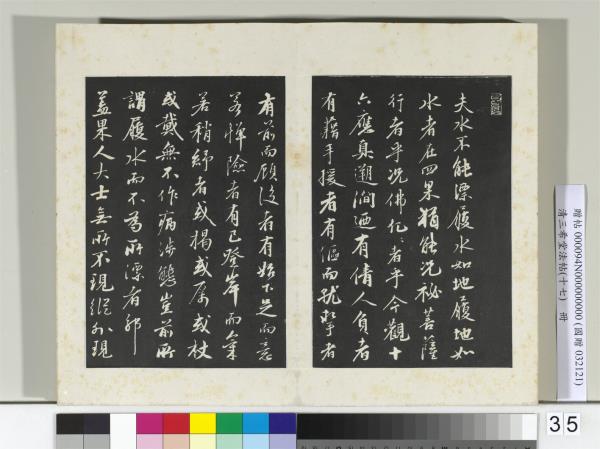 夫水不能漂履水如地履地如
水者在四果猶能況祕菩薩
行者乎況佛化〻者乎今觀十
六應真遡澗迤有倩人負者
有藉手援者有傴而就挈者
有前而顧後者有始下足而意
若憚險者有已登岸而氣
若稍紓者或揭或厲或杖
或戴無不作病涉態豈前所
謂履水而不為所漂者邪
蓋果人大士無所不現縱外現
贈帖 000094N000000000 (國贈 032121)
清三希堂法帖(十七) 冊
35